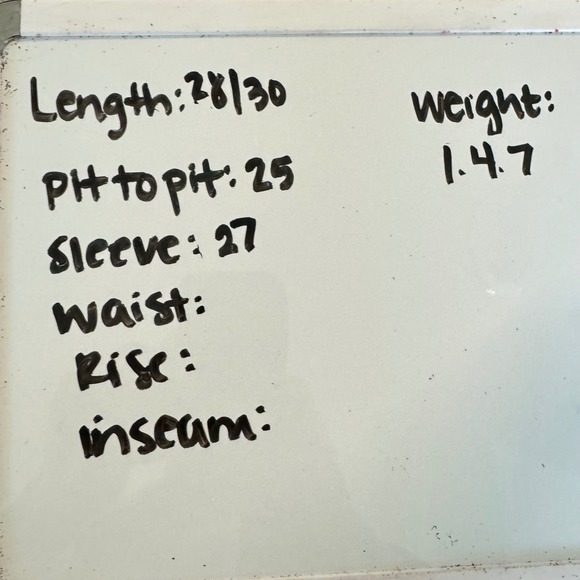 Length: 28/30
Pit to pit: 25
Sleeve: 27
Waist:
Rise:
Inseam:
Weight:
1.4.7